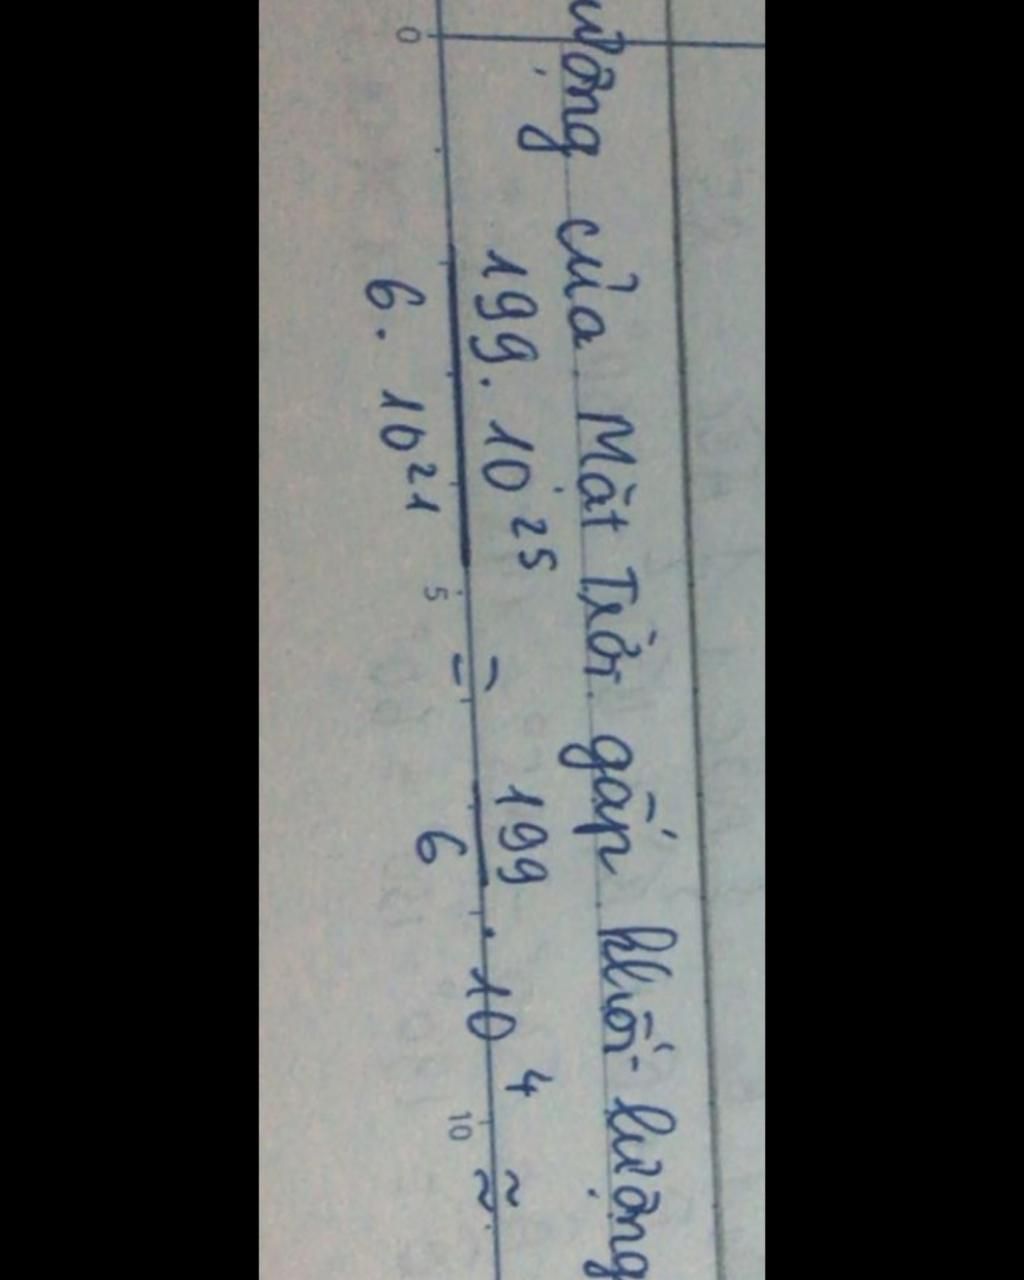 lượng của Mặt Trời gấp khối lượng
199.10²⁵ = 199 . 10⁴ ≈
6.10²¹ 6
0 5 10